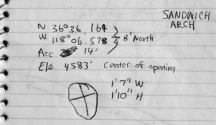 SANDWICH
ARCH
N 36°36.164
W 118°06.578 } 8' North
Acc 14'
Ele 4583' Center of opening
1'7" W
1'10" H